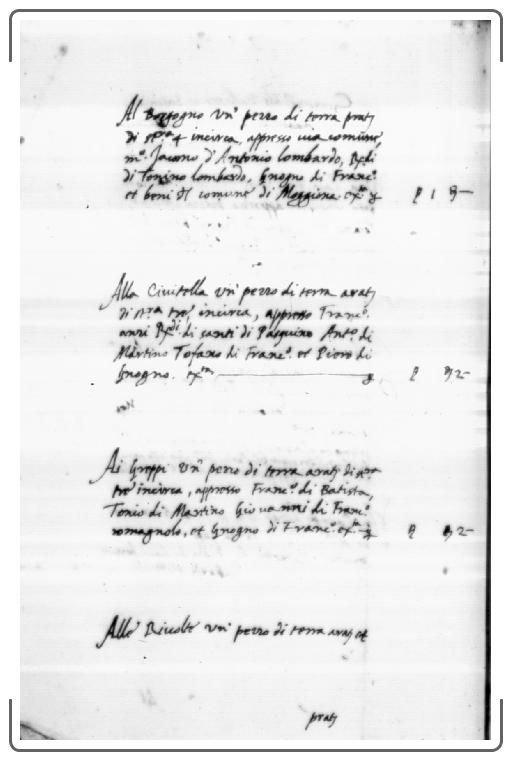 Al Borgogno un' pezzo di terra prat;
di st.ra 4 incirca, appresso via comune,
m.o Jacono d'Antonio lombardo, Redi
di Tonino lombardo, Gnogno di Franc.o
et beni d'l comune di Moggiona ex.m
Alla Civitella un' pezzo di terra arat;
di st.ra tre, incirca, appresso Franc.o
anzi Redi di santi di Pasquino Ant.o di
Martino Tofano di Franc.o et Piero di
Gnogno. ex.m
Ai Greppi un' pezzo di terra arat; di st.ra
tre incirca, appresso Franc.o di Batista,
Tonio di Martino Giovanni di Franc.o
romagnolo, et Gnogno di Franc.o ex.m
Alle Rivolte un' pezzo di terra arat; et
prat;